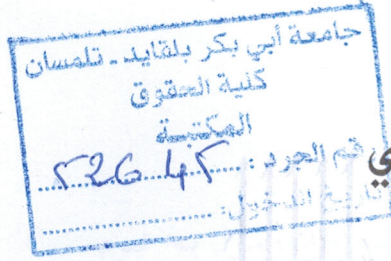 جامعة أبي بكر بلقايد - تلمسان
كلية الحقوق
المكتبة
رقم الجرد :
تاريخ الدخول:
ي